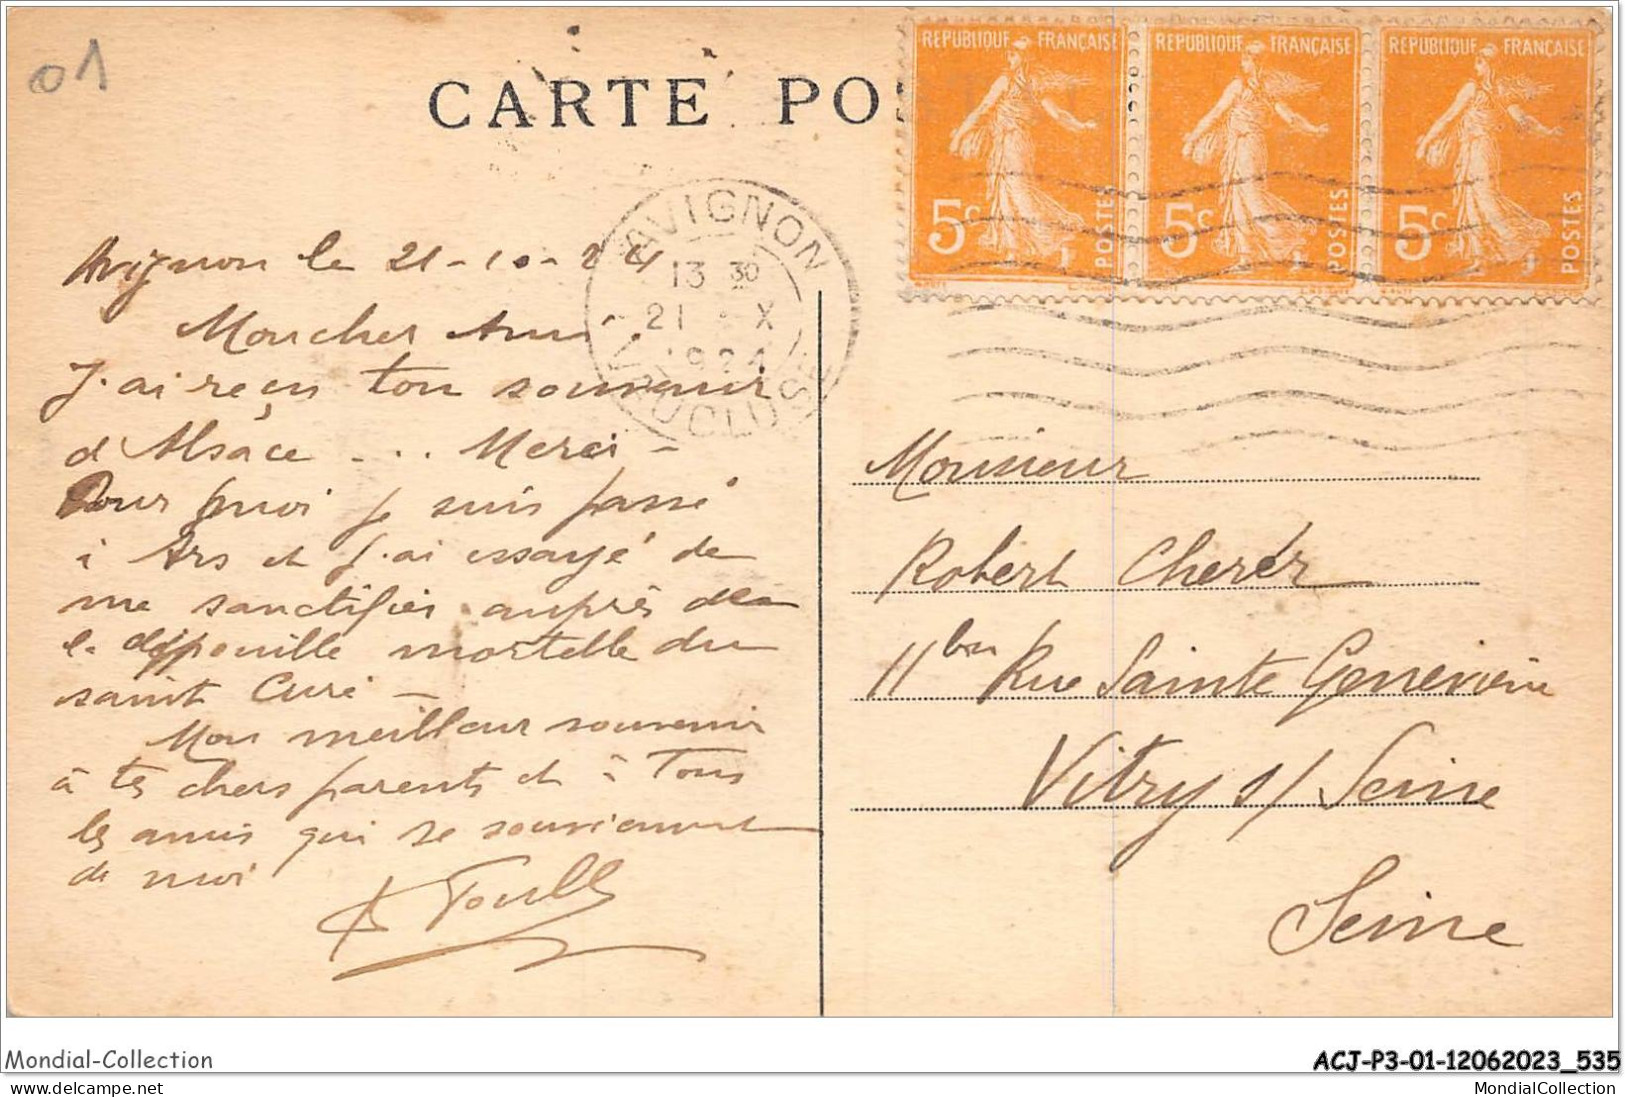 01
CARTE POS
REPUBLIQUE FRANÇAISE
5c POSTES
REPUBLIQUE FRANÇAISE
5c POSTES
REPUBLIQUE FRANÇAISE
5c POSTES
AVIGNON
13 30
21 X
1924
VAUCLUSE
Avignon le 21-10-24
Moncher Ami
J'ai reçu ton souvenir
d'Alsace ... Merci -
Pour moi je suis passé
à Ars et j'ai essayé de
me sanctifier auprès de
la dépouille mortelle du
saint Curé -
Mon meilleur souvenir
à tes chers parents et à Tous
les amis qui se souviennent
de moi
Monsieur
Robert Cherér
11 bis Rue Sainte Geneviève
Vitry s/ Seine
Seine
Mondial-Collection
ACJ-P3-01-12062023_535
Mondial-Collection
MondialCollection